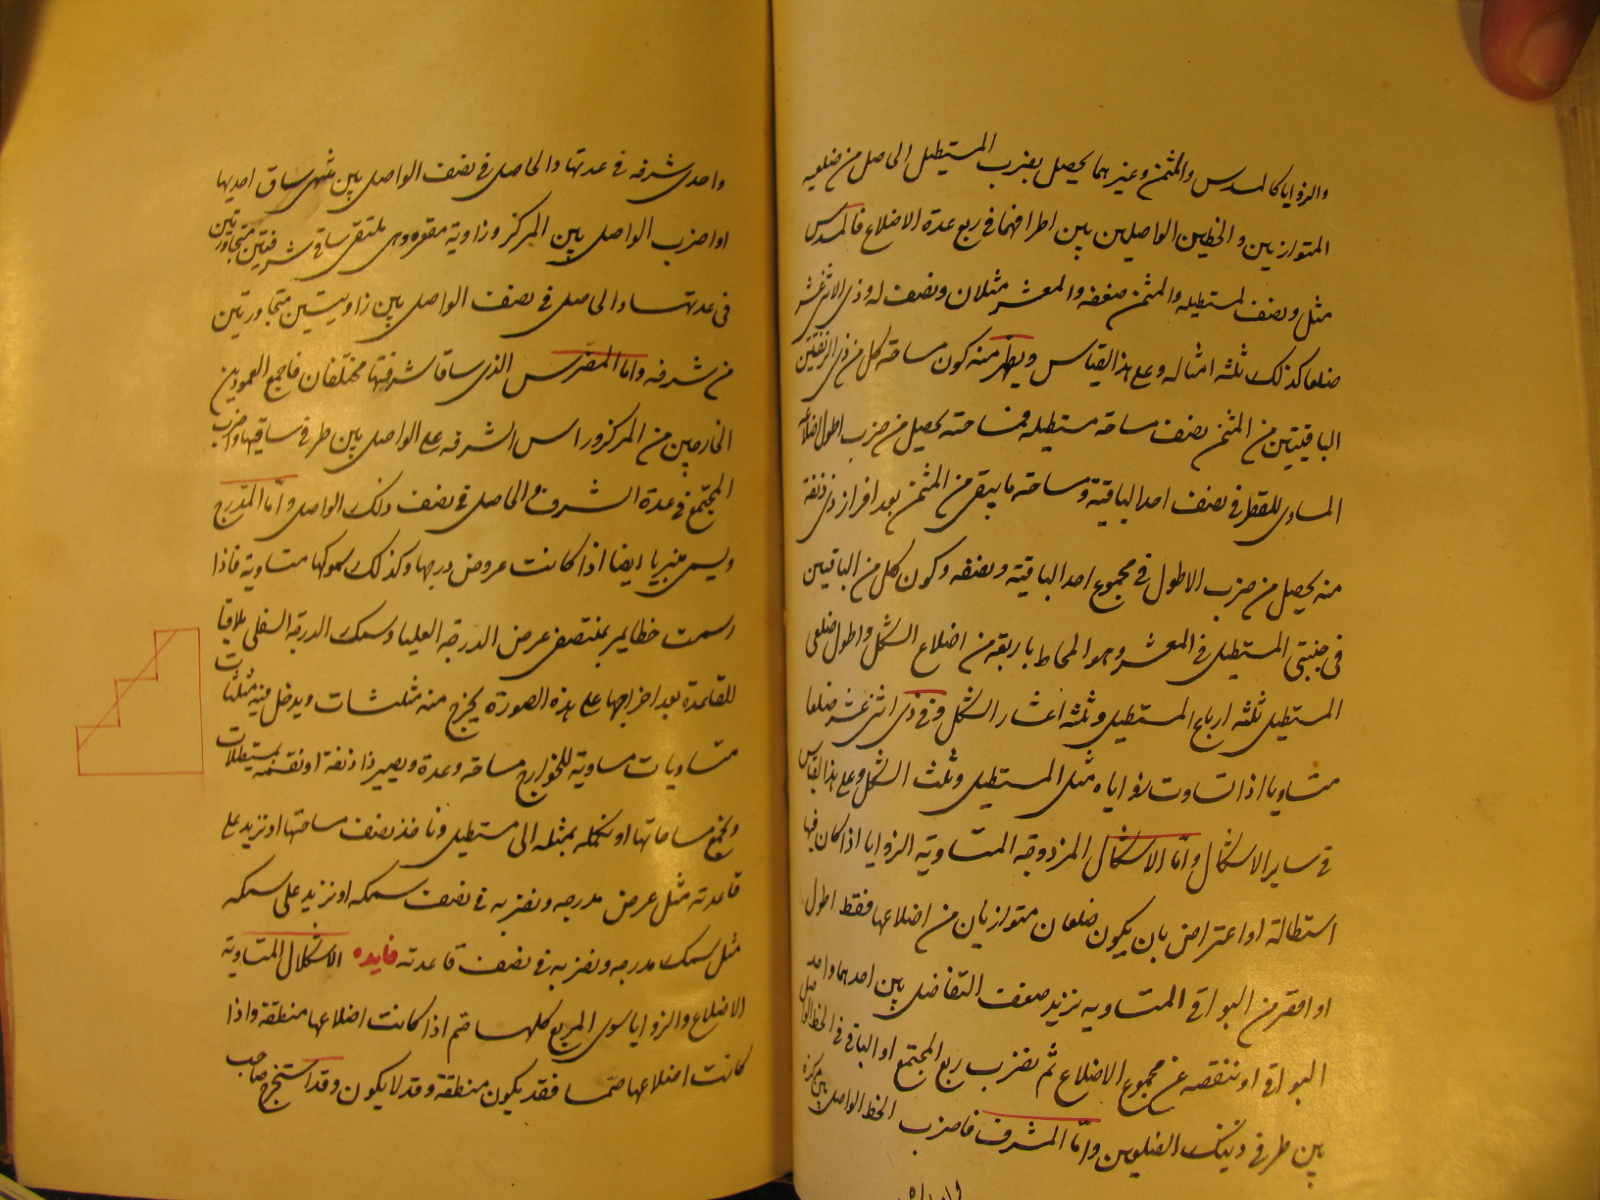 والزوايا كالمسدس والمثمن وغيرهما يحصل بضرب المستطيل الحاصل من ضلعيه
المتوازيين والخطين الواصلين بين اطرافهما فى ربع عدة الاضلاع فالمسدس
مثل ونصف لمستطيله والمثمن ضعفه والمعشر مثلان ونصف له وذى الاثنى عشر
ضلعا كذلك ثلثه امثاله وعلى هذا القياس ويظهر منه كون مساحة كل من ذى الزنقتين
الباقيتين من المثمن نصف مساحة مستطيله فمساحته يحصل من ضرب اطول اضلاعه
المساوى للقطر فى نصف احد الباقية ومساحة ما يبقى من المثمن بعد افراز ذى زنقة
منه يحصل من ضرب الاطول فى مجموع احد الباقية ونصفه وكون كل من الباقيين
فى جنبتى المستطيل فى المعشر وهو المحاط باربعة من اضلاع الشكل واطول ضلعى
المستطيل ثلثه ارباع المستطيل وثلثه اعشار الشكل وفى ذى اثنى عشر ضلعا
متساويا اذا تساوت زواياه مثل المستطيل وثلث الشكل وعلى هذا القياس
فى ساير الاشكال واما الاشكال المزدوجة المتساوية الزوايا اذا كان فيها
استطالة او اعتراض بان يكون ضلعان متوازيان من اضلاعها فقط اطول
او اقصر من البواقى المتساويه نزيد ضعف التفاضل بين احدهما واحد
البواقى او ننقصه عن مجموع الاضلاع ثم نضرب ربع المجتمع او الباقى فى الخط الواصل
بين طرفى ذينك الضلعين واما المشرف فاضرب الخط الواصل بين مركزه
واحدى شرفه فى عدتها والحاصل فى نصف الواصل بين منتهى ساق احديها
او اضرب الواصل بين المركز وزاوية مقعره وهى ملتقى ساقى شرفتين متجاورتين
فى عدتها والحاصل فى نصف الواصل بين زاويتين متجاورتين
من شرفه واما المضرس الذى ساقا شرفتها مختلفان فاجمع العمودين
الخارجين من المركز وراس الشرفه على الواصل بين طرفى ساقيها واضرب
المجتمع فى عدة الشرف والحاصل فى نصف ذلك الواصل واما المدرج
ويسمى منبريا ايضا اذا كانت عروض درجها وكذلك سموكها متساوية فاذا
رسمت خطا يمر بمنتصفى عرض الدرجة العليا وسمك الدرجة السفلى يلاقيا
للقاعدة بعد اخراجها على هذه الصورة يخرج منه مثلثات ويدخل فيه مثلثات
متساويات مساوية للخوارج مساحة وعدة ويصير ذا زنقة او نقسمه بمستطيلات
ونجمع مساحاتها او نكمله بمثله الى مستطيل وناخذ نصف مساحتها او نزيد على
قاعدته مثل عرض مدرجه ونضربه فى نصف سمكه او نزيد على سمكه
مثل سمك مدرجه ونضربه فى نصف قاعدته فايده الاشكال المتساوية
الاضلاع والزوايا سوى المربع كلها صم اذا كانت اضلاعها منطقة واذا
كانت اضلاعها صما فقد يكون منطقة وقد لا يكون وقد استخرج صاحب